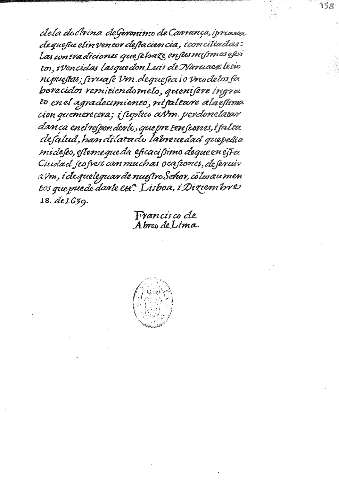 138
de la doctrina de Geronimo de Carrança, i prueva
de que fue el inventor desta ciencia, i conciliadas
las contradiciones que se haze en sus mismos escri
tos, i vencidas las que don Luis de Narvaez le tie
ne puestas; sirvase Vm. de que sea io Uno de los fa
borecidos remitiendomelo, que ni sere ingra
to en el agradecimiento, ni faltare a la estima
cion que merecera; i suplico a Vm. perdone la tar
dança en el responderle, que pretensiones, i falta
de salud, han dilatado la brevedad que pedia
mi deseo, este me queda eficacissimo de que en esta
Ciudad se ofrescan muchas ocasiones, de servir a
Vm, i de que le guarde nuestro Señor, cõ los aumen
tos que puede darle etc.ª Lisboa, i Diziembre
18. de 1639.
Francisco de
Abreo de Lima.